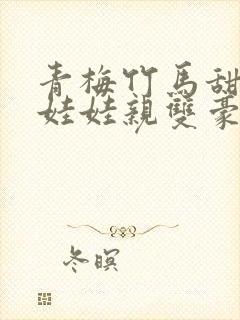 青梅竹馬甜
娃娃親雙豪
冬暝